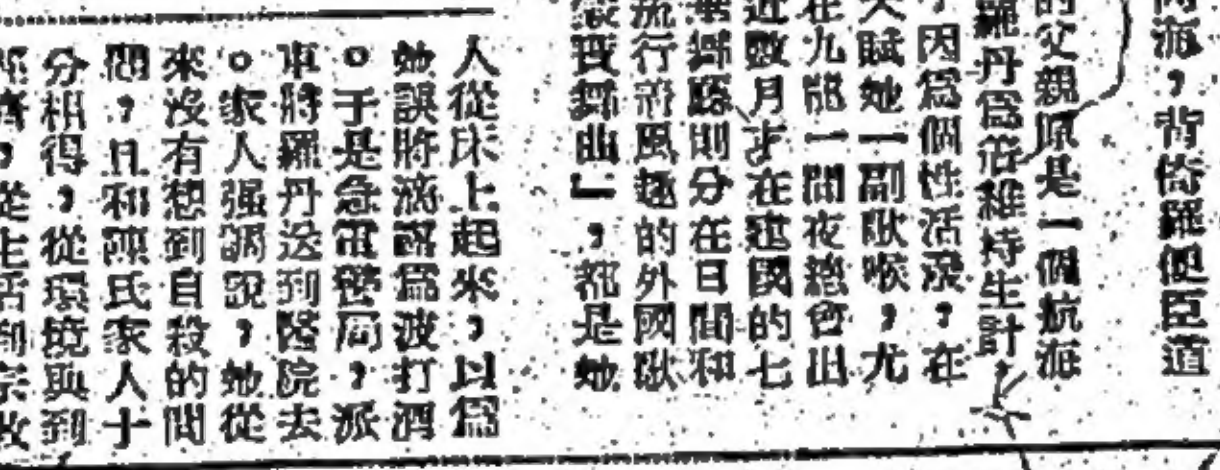 海，背倚羅便臣道
的父親原是一個航海
羅丹爲着維持生計，
因爲個性活潑，在
天賦她一副歌喉，尤
在九龍一間夜總會出
近數月才在建國的七
樂鄉廳則分在日間和
流行而風趣的外國歌
舞曲」，都是她
人從床上起來，以爲
她誤將滴露爲波打酒
。于是急電警局，派
車將羅丹送到醫院去
。家人强調說，她從
來沒有想到自殺的問
題，且和陳氏家人十
分相得，從環境與到
從生活到宗教